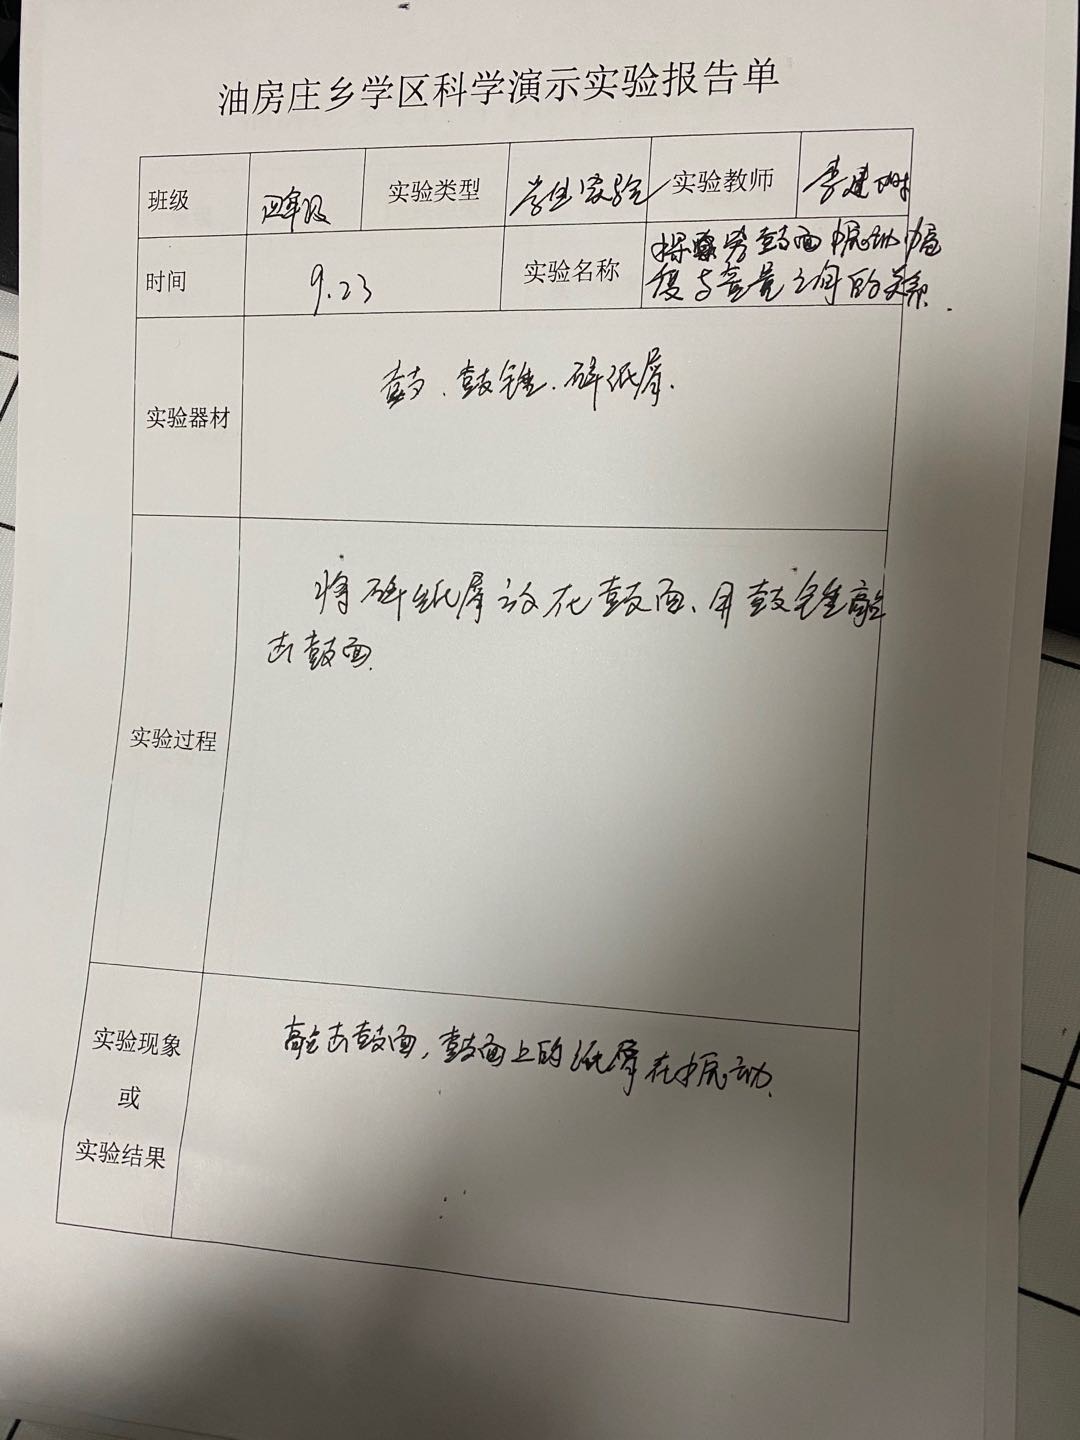 油房庄乡学区科学演示实验报告单
班级 四年级 实验类型 学生实验 实验教师 李建
时间 9.23 实验名称 探究鼓面振动幅
度与音量之间的关系.
实验器材 鼓、鼓锤、碎纸屑.
实验过程 将碎纸屑放在鼓面、用鼓锤敲
击鼓面.
实验现象
或
实验结果
敲击鼓面,鼓面上的纸屑在振动.